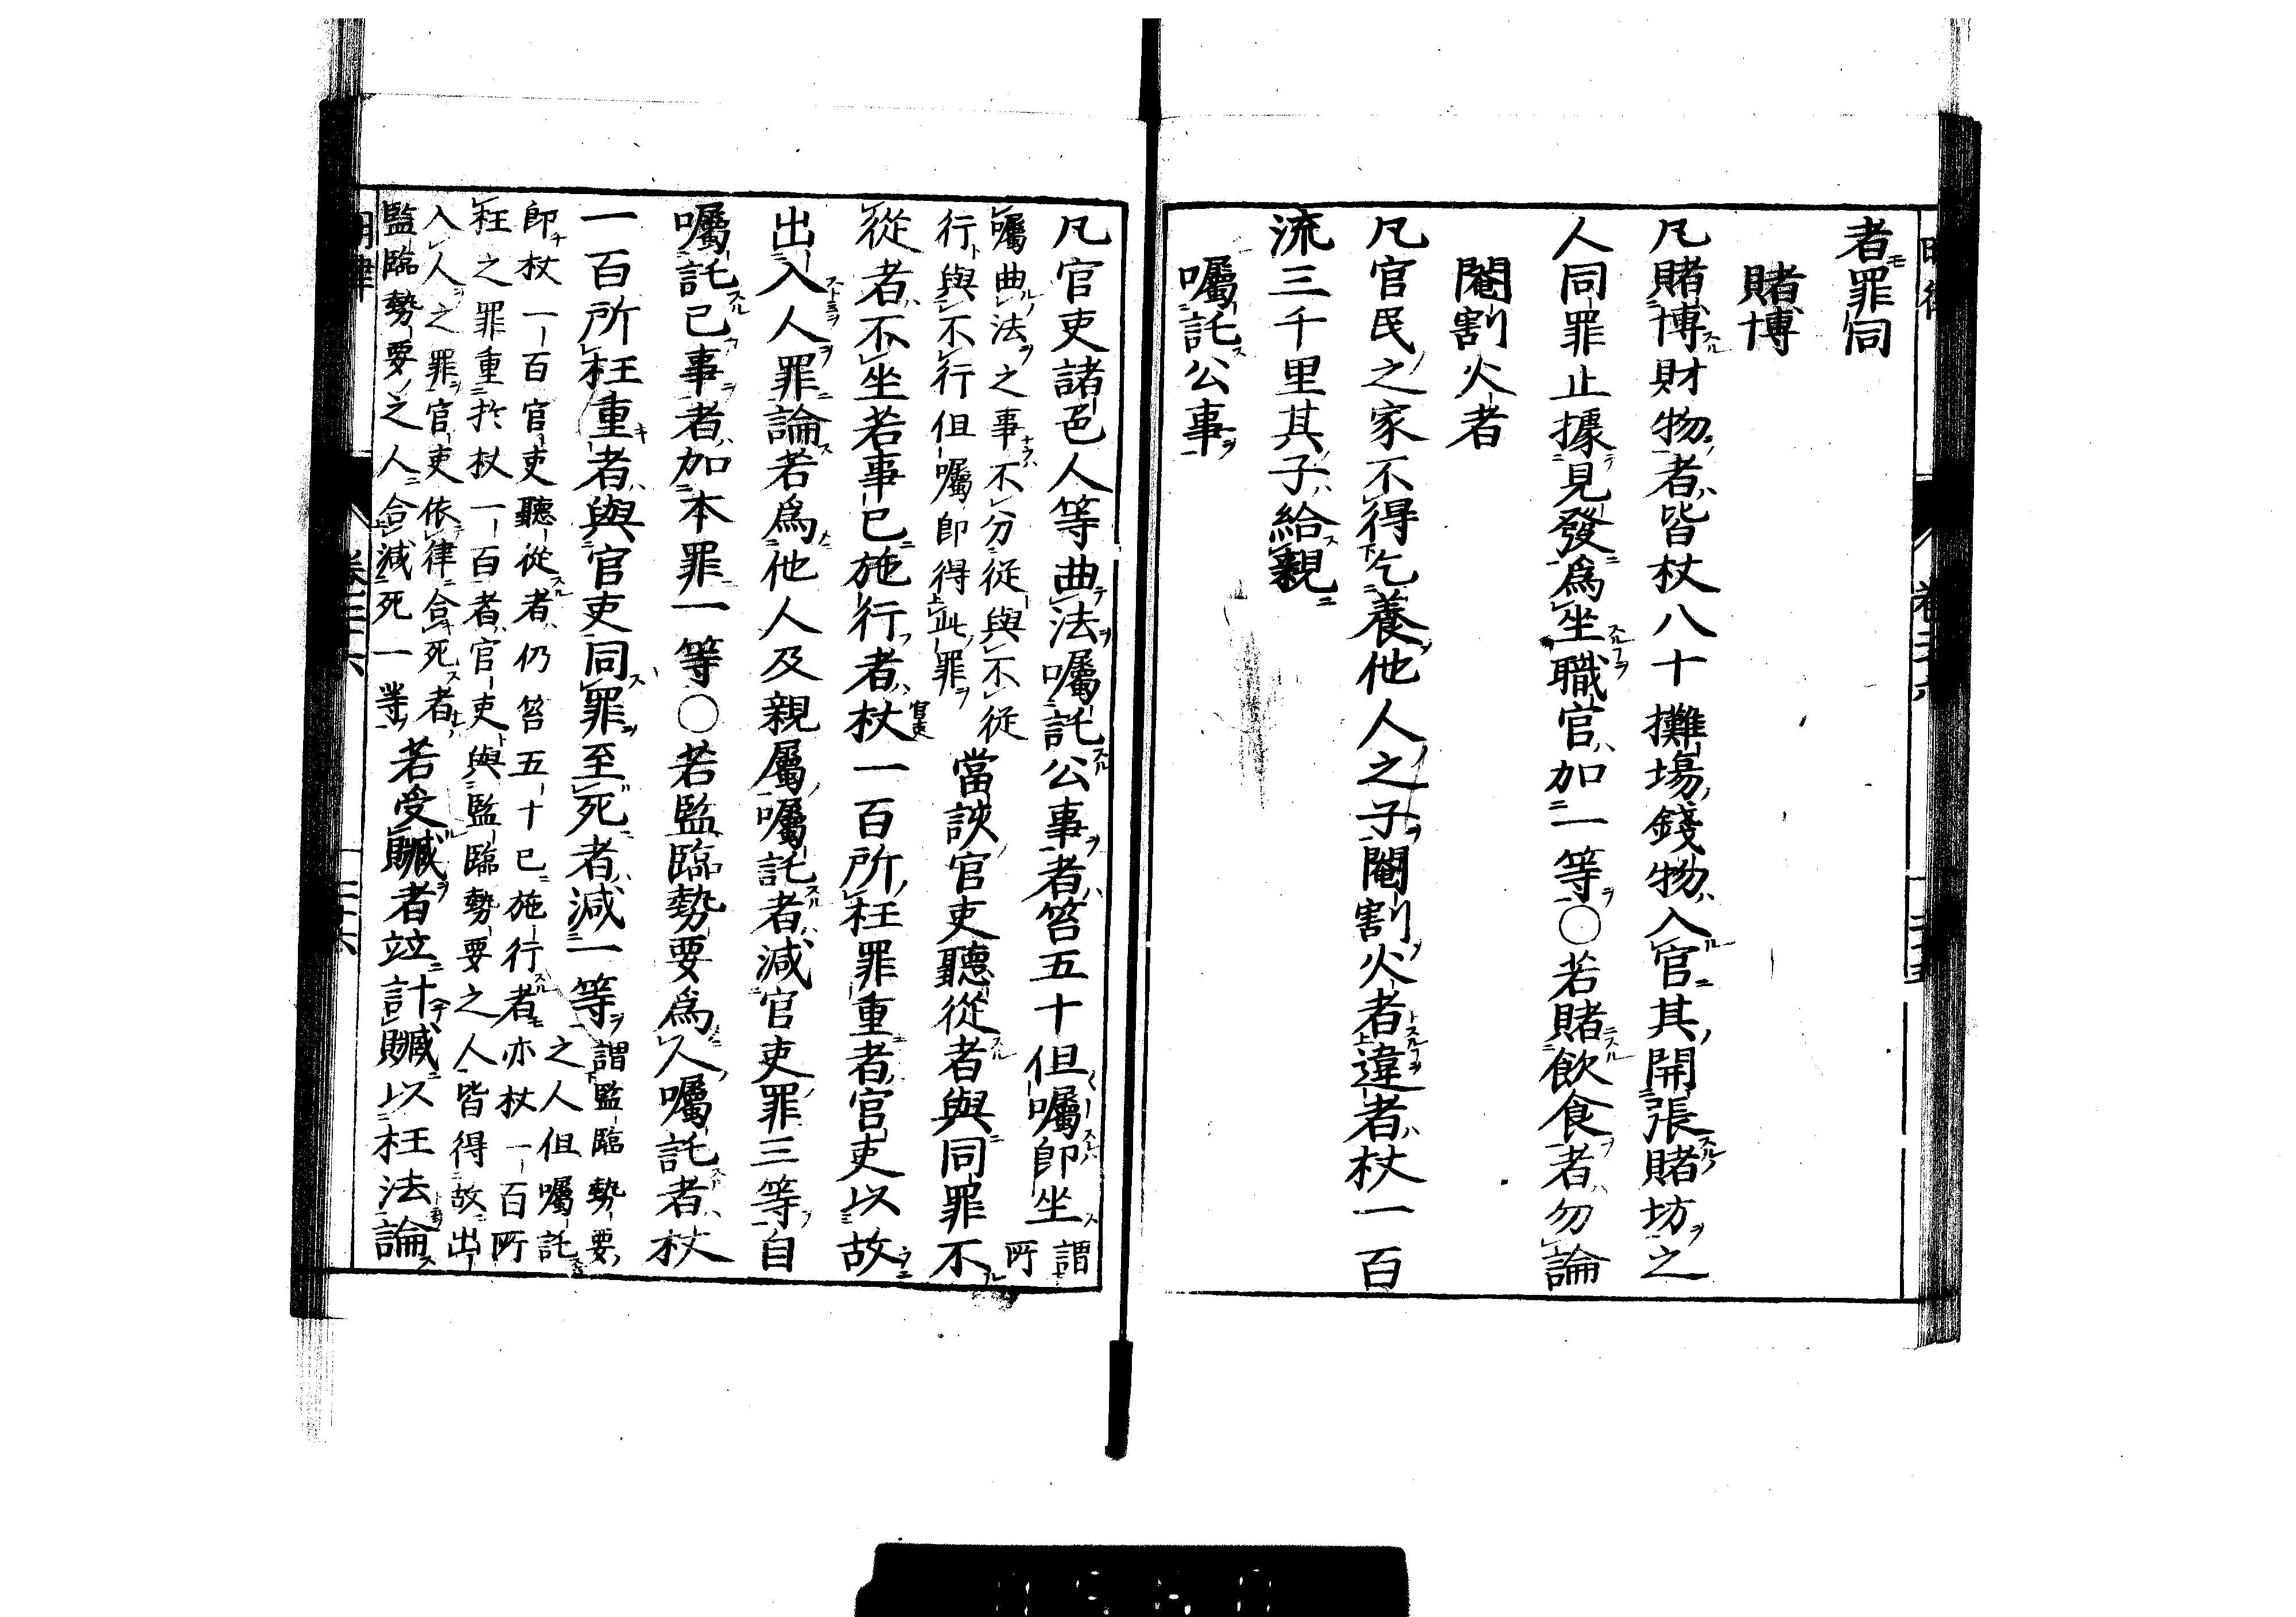 者罪同
賭博
凡賭博財物者皆杖八十攤場錢物入官其開張賭坊之
人同罪止據見發爲坐職官加一等○若賭飲食者勿論
閹割火者
凡官民之家不得乞養他人之子閹割火者違者杖一百
流三千里其子給親
囑託公事
凡官吏諸色人等曲法囑託公事者笞五十但囑即坐謂所
囑曲法之事不分從與不從
行與不行但囑即得此罪
當該官吏聽從者與同罪不
從者不坐若事已施行者杖一百所枉罪重者官吏以故
出入人罪論若爲他人及親屬囑託者減官吏罪三等自
囑託已事者加本罪一等○若監臨勢要爲人囑託者杖
一百所枉重者與官吏同罪至死者減一等謂監臨勢要
之人但囑託
即杖一百官吏聽從者仍笞五十已施行者亦杖一百所
枉之罪重於杖一百者官吏與監臨勢要之人皆得故出
入人之罪官吏依律合死者
監臨勢要之人合減死一等
若受贓者竝計贓以枉法論